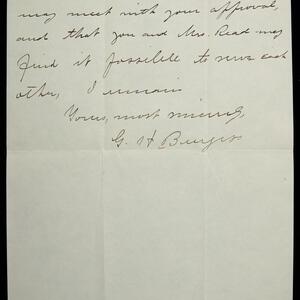 may meet with your approval,
and that you and Mrs. Read may
find it possible to serve each
other, I remain
Yours, most sincerely,
G. H Burgess